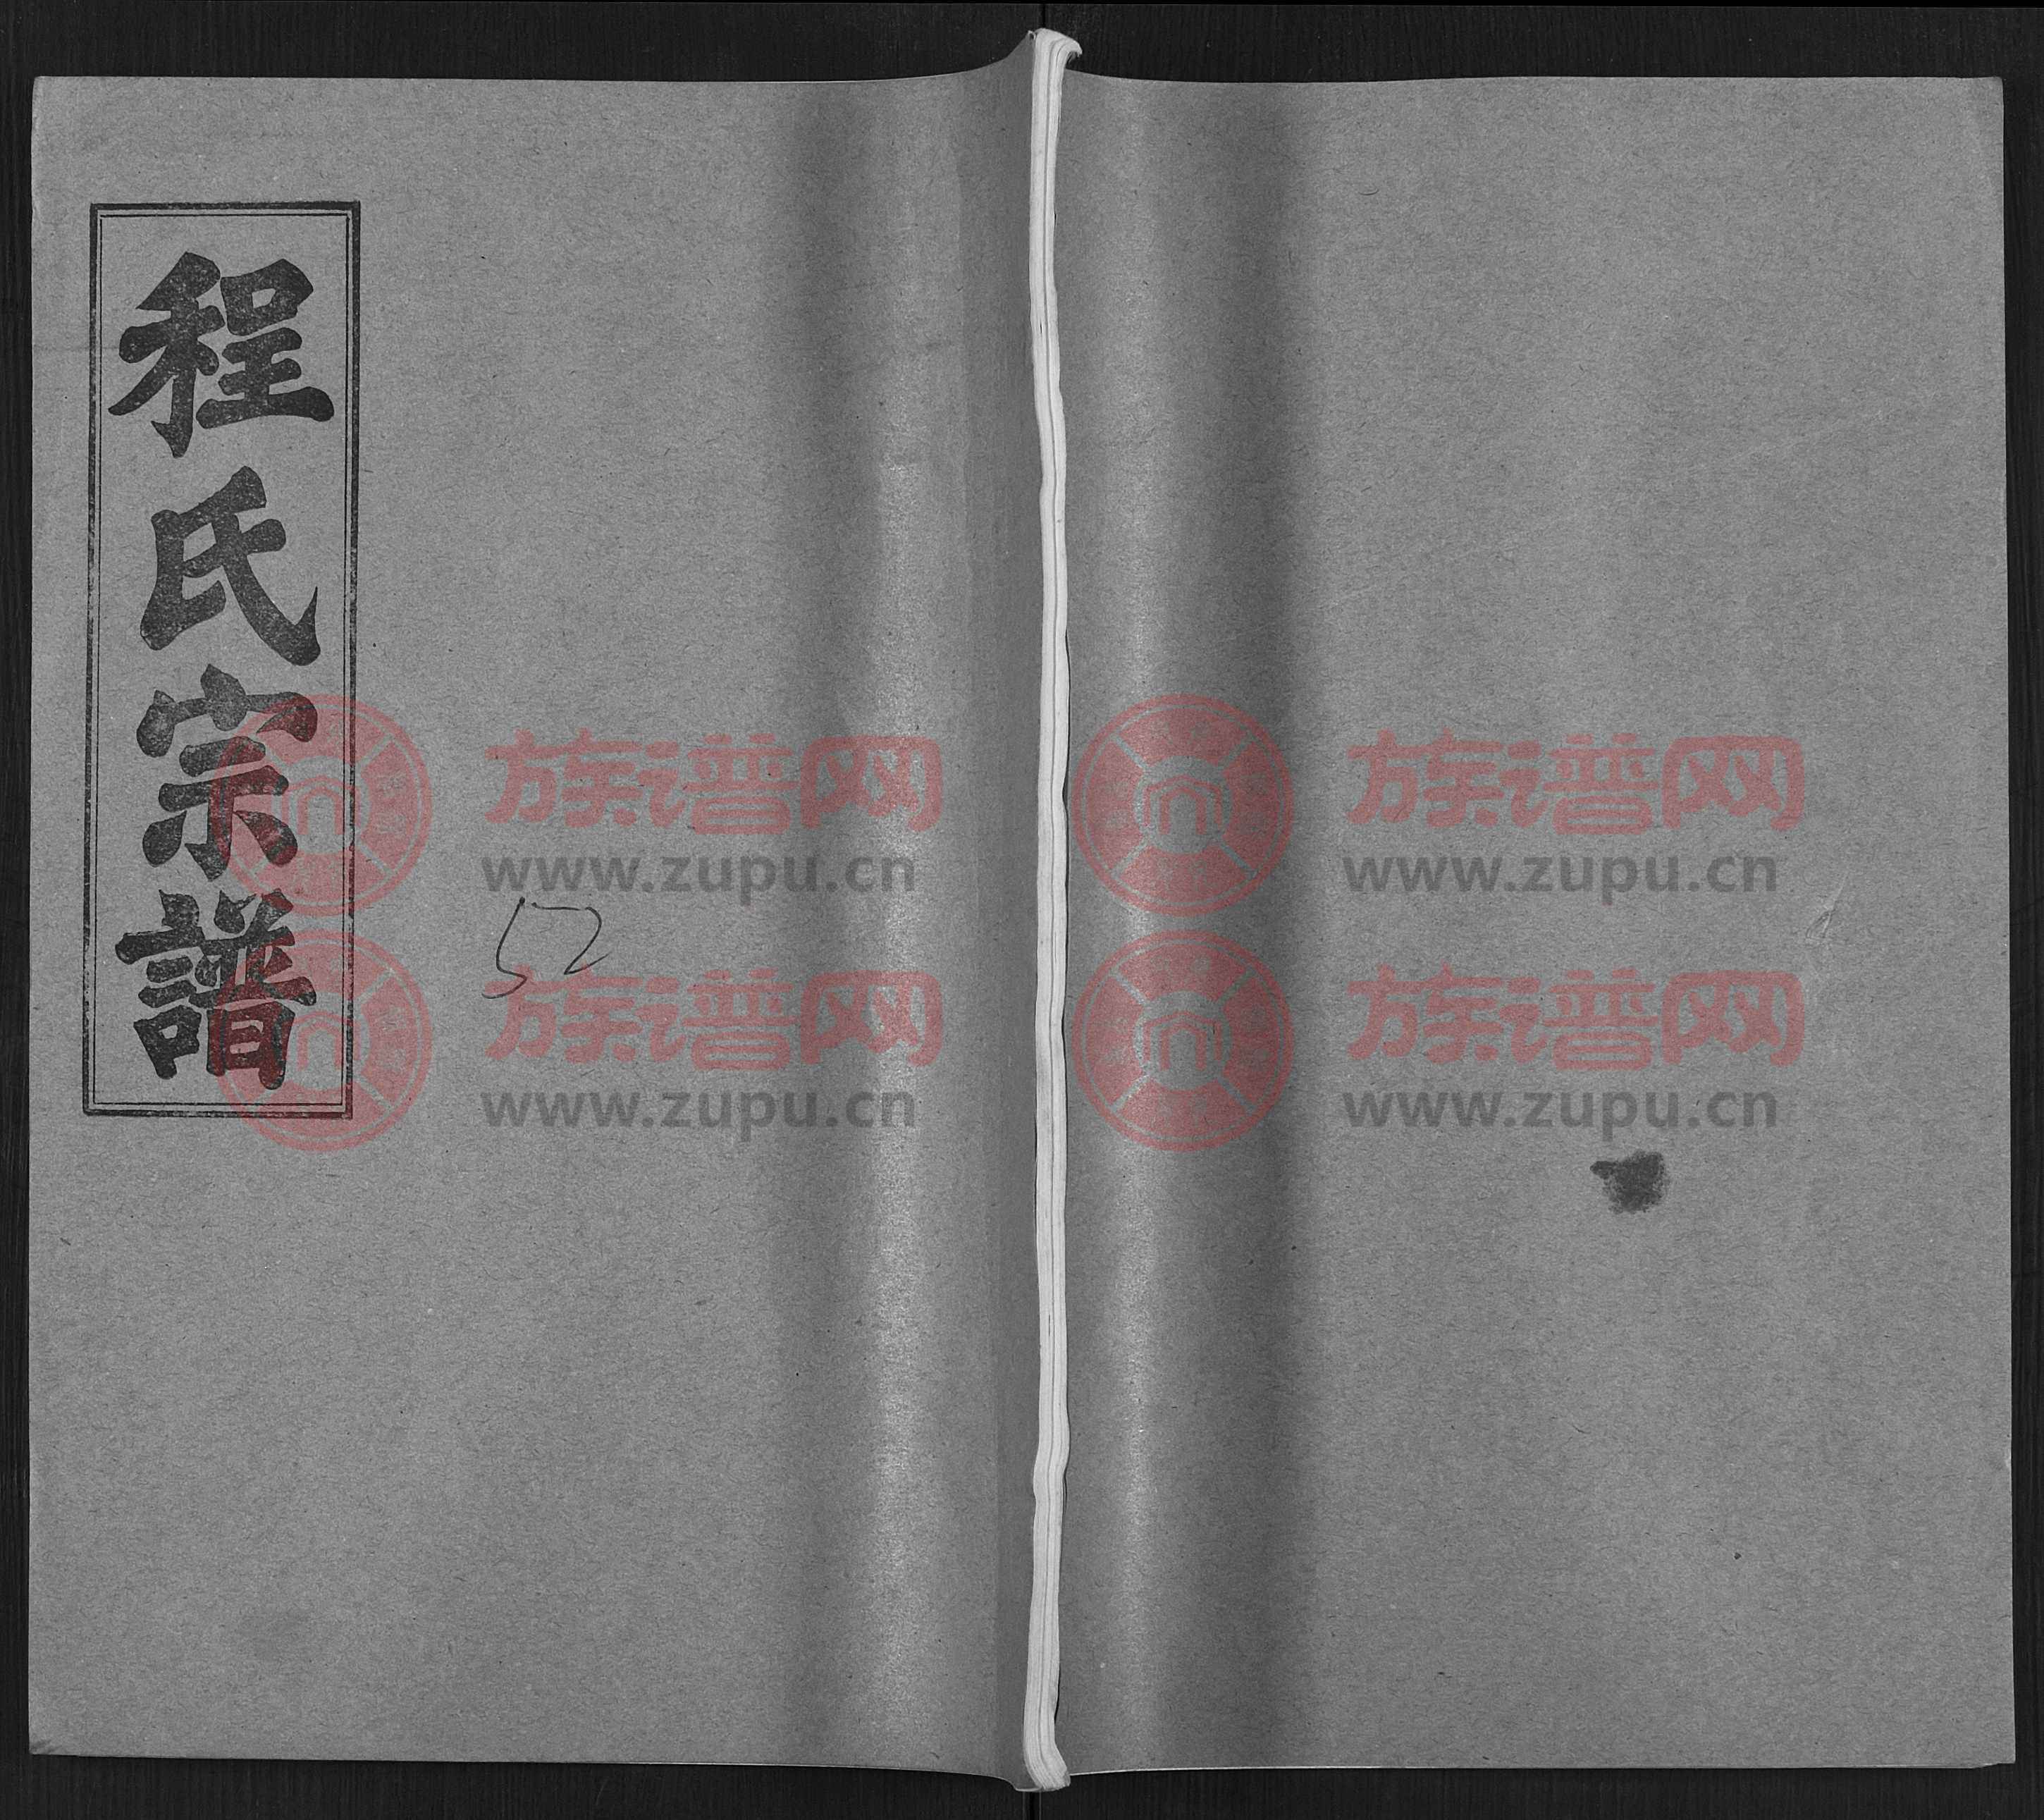 程氏宗譜
52
族谱网 族谱网
www.zupu.cn www.zupu.cn
族谱网 族谱网
www.zupu.cn www.zupu.cn